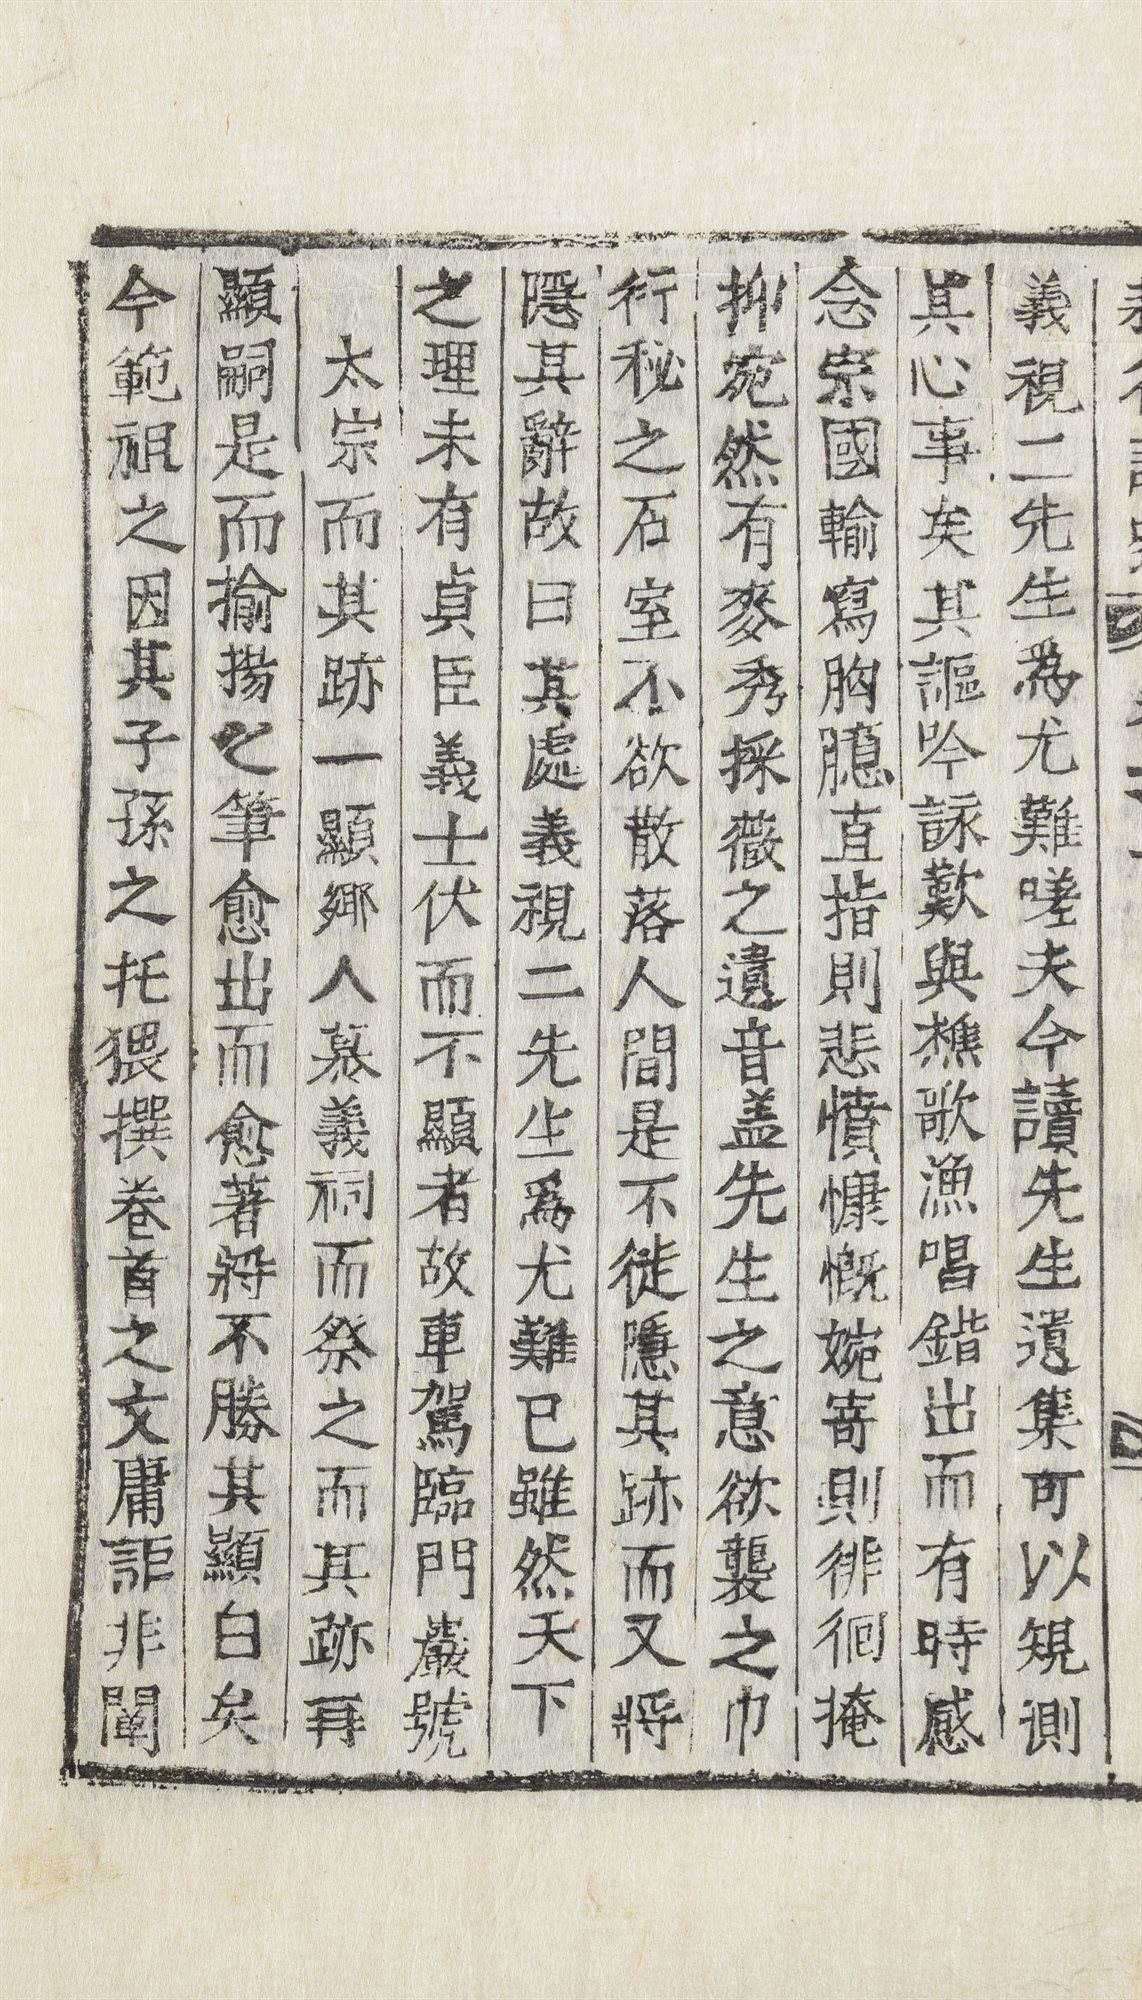 義視二先生為尤難嗟夫今讀先生遺集可以規測
其心事矣其謳吟詠歎與樵歌漁唱錯出而有時感
念宗國輸寫胸臆直指則悲憤慷慨婉寄則徘徊掩
抑宛然有麥秀採薇之遺音盖先生之意欲襲之巾
衍秘之石室不欲散落人間是不徒隱其跡而又將
隱其辭故曰其處義視二先生爲尤難已雖然天下
之理未有貞臣義士伏而不顯者故車駕臨門嚴號
太宗而其跡一顯鄉人慕義祠而祭之而其跡再
顯嗣是而揄揚之筆愈出而愈著將不勝其顯白矣
今範祖之因其子孫之托猥撰卷首之文庸詎非闡